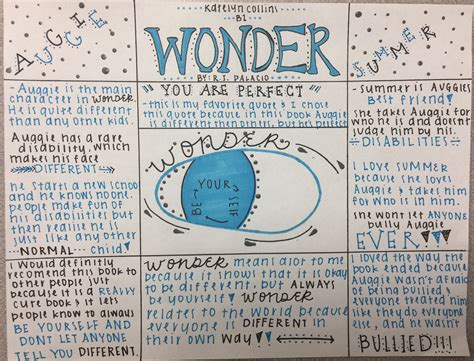 Katelyn Collini
B1
WONDER
BY: R.J. PALACIO
AUGGIE
SUMMER
- Auggie is the main
character in WONDER.
He is quite different
than any other kids.
Auggie has a rare
disability, which
makes his face
DIFFERENT
he starts a new school
and he knows noone.
people make fun of
his disabilities but
then realize he is
just like any other
NORMAL child
"YOU ARE PERFECT"
- this is my favorite quote & I chose
this quote because in this book Auggie
is different then others, but he's perfect
WONDER
BE YOUR
SELF
- summer is AUGGIES
Best friend!
she takes Auggie for
who he is and doesnt
judge him by his
DISABILITIES
I love SUMMER
because she loves
Auggie & takes him
for who is in and out
she wont let ANYONE
bully Auggie
EVER!!!
I would definitly
recomend this book to
other people just
because it is a REALLY
cute book & it lets
people know to always
BE YOURSELF AND
DONT LET ANYONE
TELL YOU DIFFERENT.
WONDER means alot to me
because it shows that it is okay
to be different, but ALWAYS
be yourself! WONDER
relates to the world because
everyone is DIFFERENT in
their own Way
I loved the way the
book ended because
Auggie wasnt afraid
of being bullied &
everyone treated him
like they do everyone
else and he wasn't
BULLIED!!!